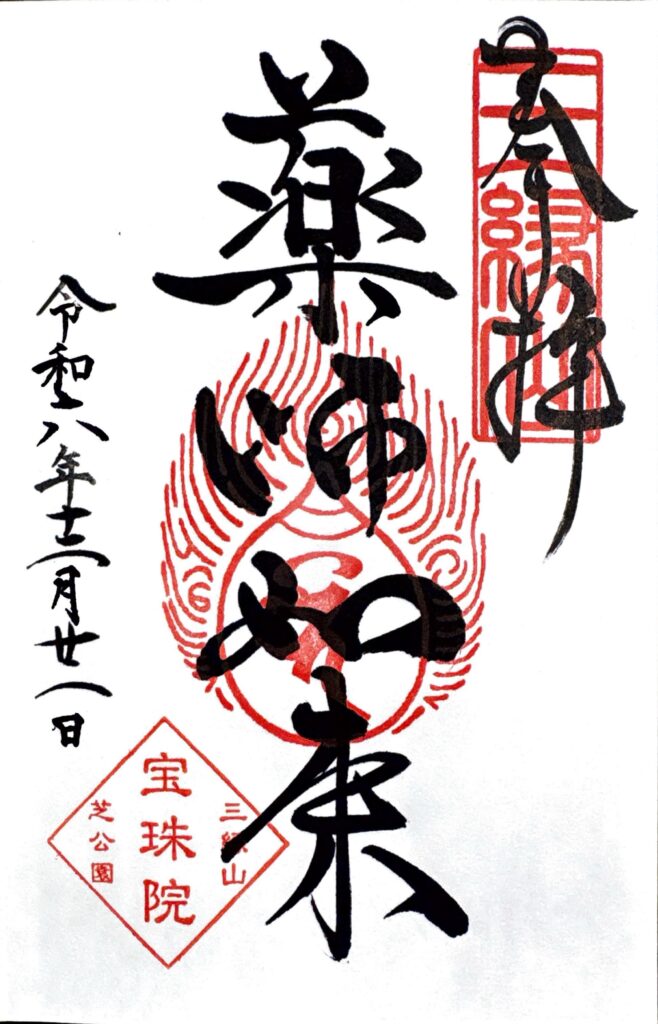 奉拝
三縁山
薬師如来
令和八年十二月廿八日
三縁山
宝珠院
芝公園